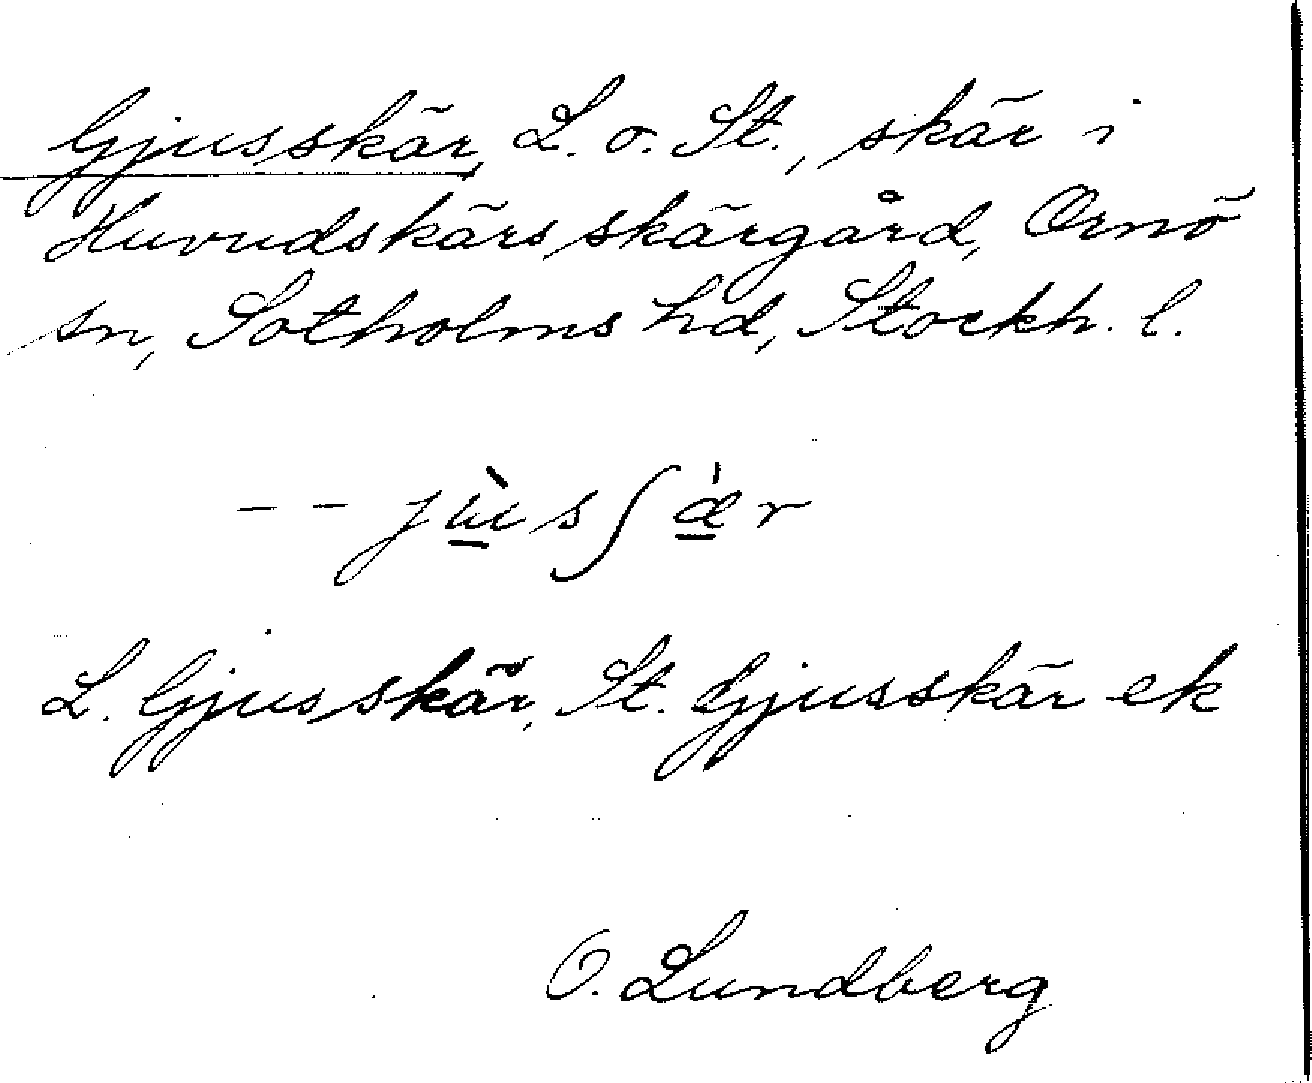 Gjusskär, L. o. St., skär i
Huvudskärs skärgård, Ornö
sn, Sotholms hd, Stockh. l.
-- jùsʃær
L. Gjusskär, St. Gjusskär ek
O. Lundberg